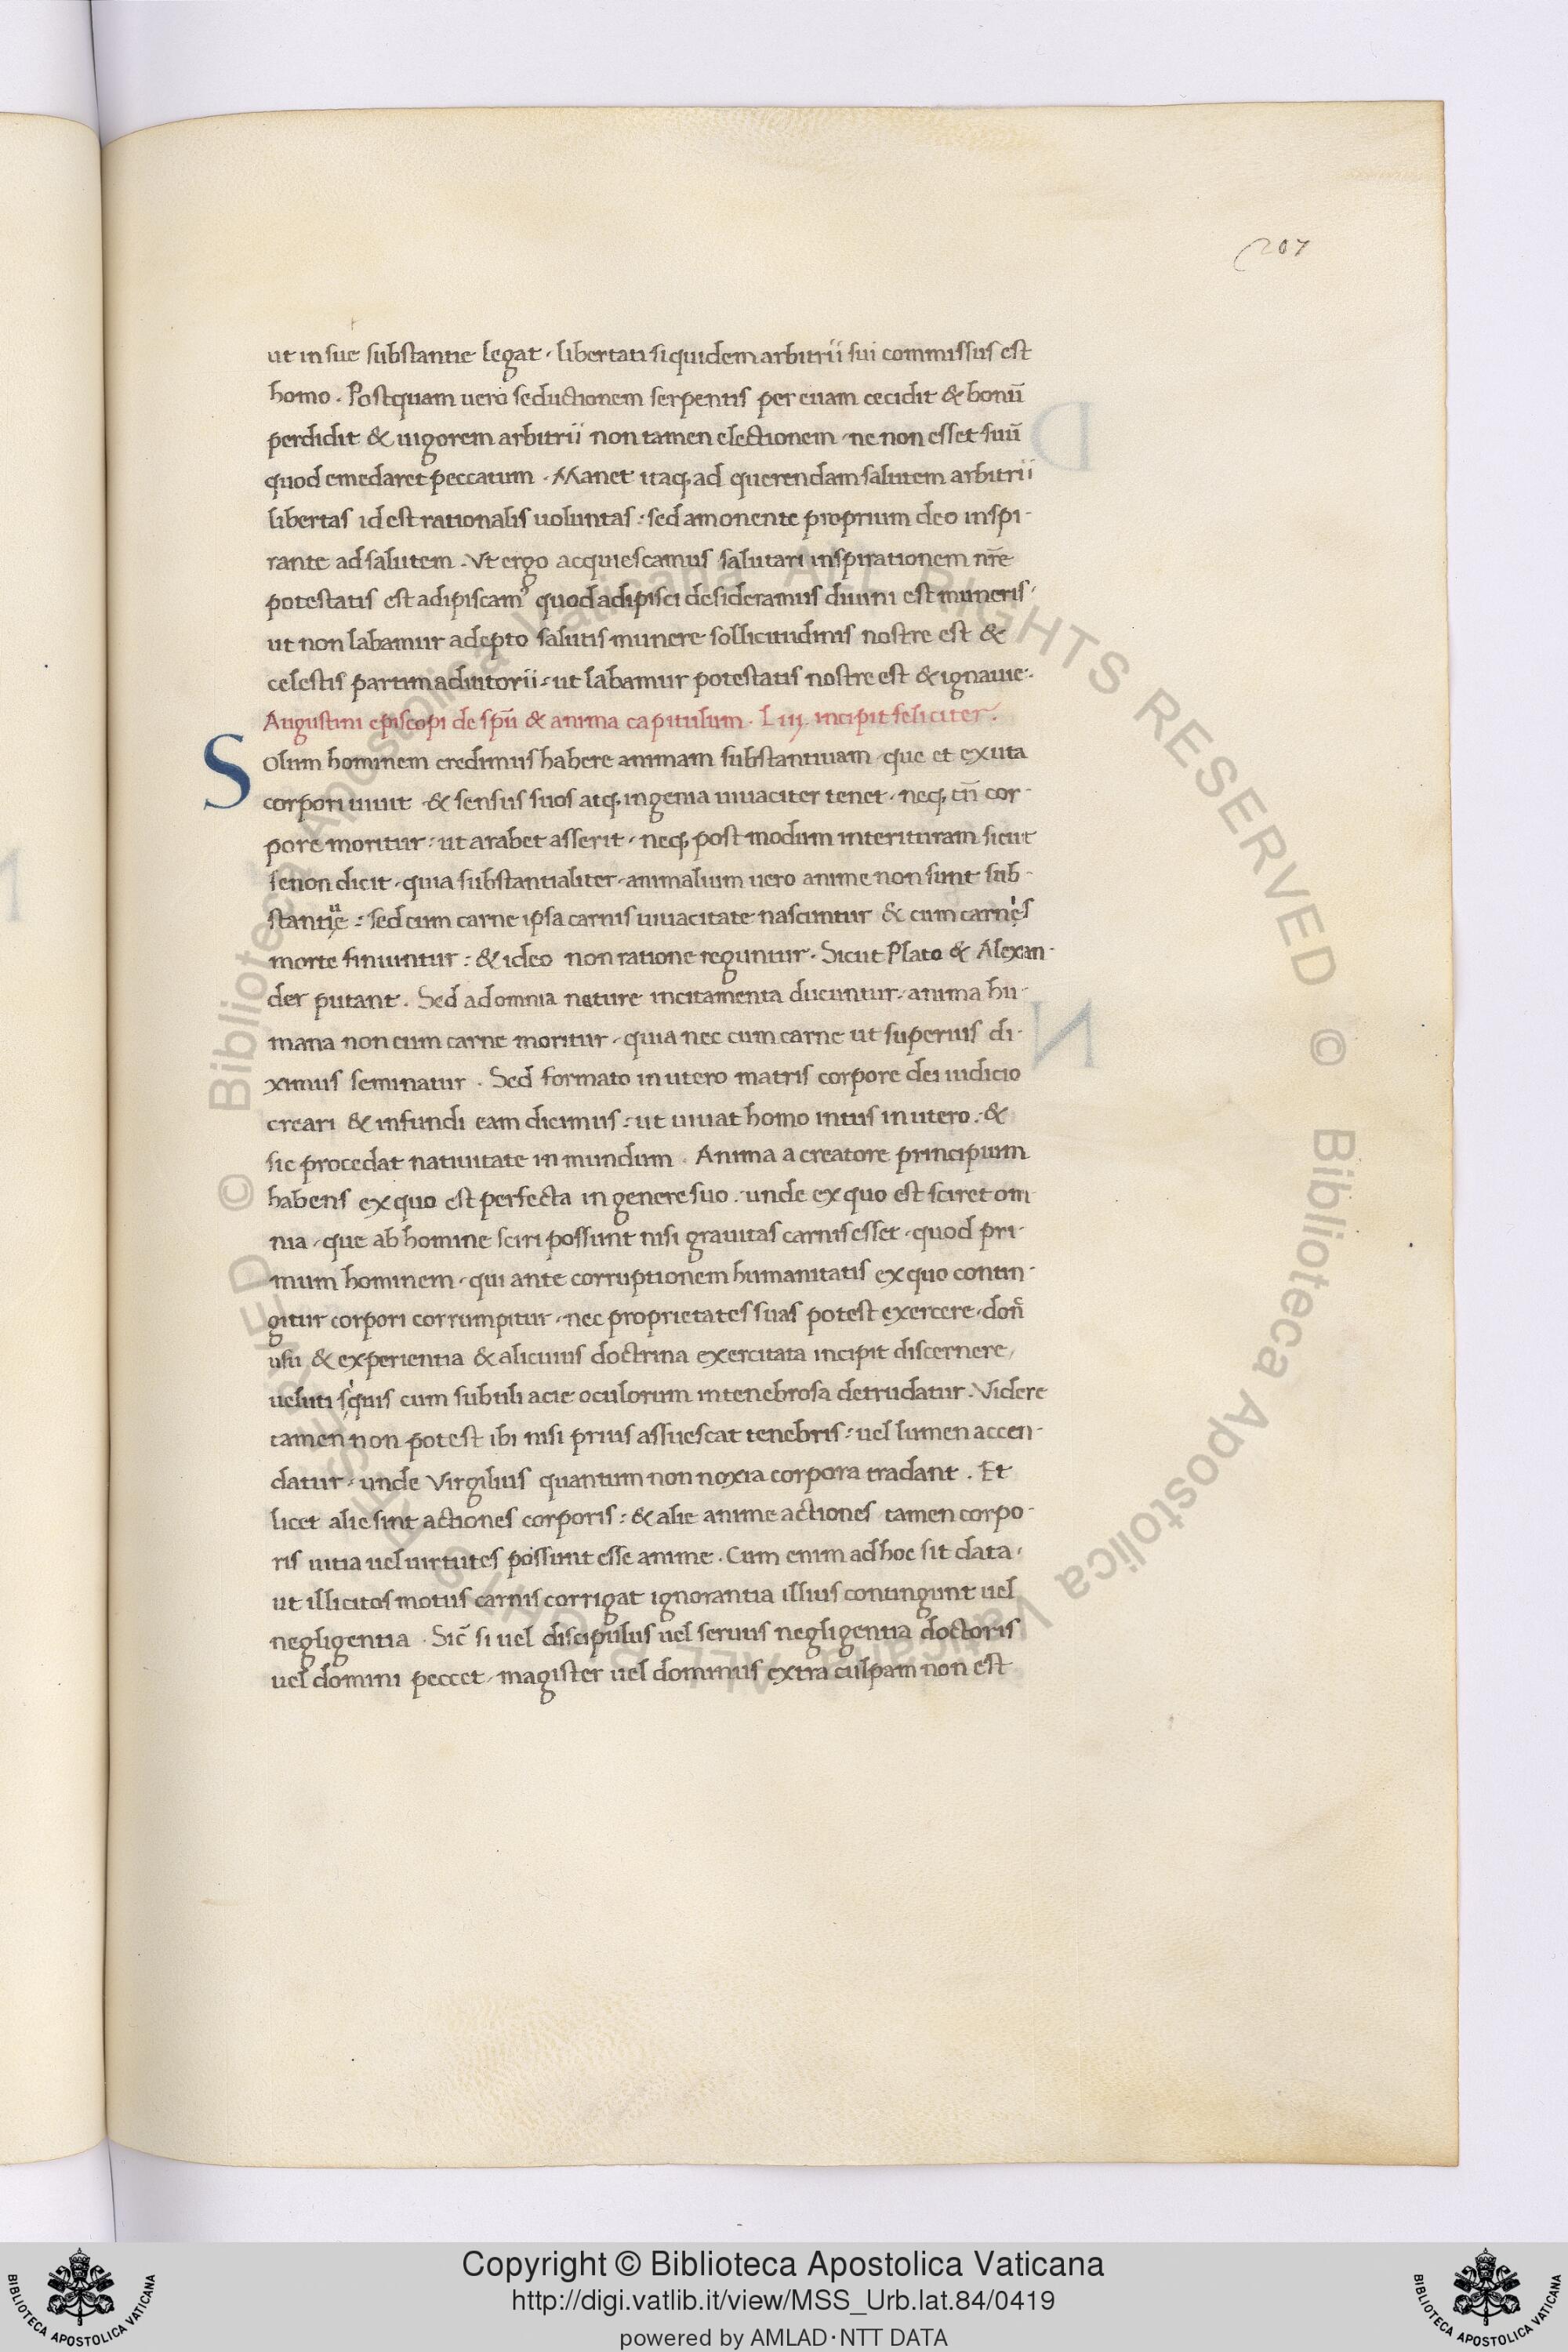 207
ut in sue substantie legat · libertati siquidem arbitrii sui commissus est
homo . Postquam uero seductionem serpentis per euam cecidit & bonū
perdidit & uigorem arbitrii non tamen electionem · ne non esset suū
quod emedaret peccatum . Manet itaq; ad querendam salutem arbitrii
libertas id est rationalis uoluntas : sed amonente proprium deo inspi-
rante ad salutem . Vt ergo acquiescamus salutari inspirationem nr̄e
potestatis est adipiscam' quod adipisci desideramus diuini est muneris ·
ut non labamur adepto salutis munere sollicitudinis nostre est &
celestis partim adiutorii : ut labamur potestatis nostre est & ignauie :
Augustini episcopi de spū & anima capitulum . Liij. incipit feliciter .
Solum hominem credimus habere animam substantiuam · que et exuta
corpori uiuit · & sensus suos atq; ingenia uiuaciter tenet · neq; cū cor-
pore moritur : ut arabet asserit · neq; post modum interituram sicut
senon dicit · quia substantialiter · animalium uero anime non sunt sub-
stantiuę : sed cum carne ipsa carnis uiuacitate nascuntur & cum carnis
morte finiuntur : & ideo non ratione reguntur . Sicut Plato & Alexan-
der putant . Sed ad omnia nature incitamenta ducuntur · anima hu-
mana non cum carne moritur · quia nec cum carne ut superius di-
ximus seminatur . Sed formato in utero matris corpore dei iudicio
creari & infundi eam dicimus : ut uiuat homo intus in utero : &
sic procedat natiuitate in mundum . Anima a creatore principium
habens ex quo est perfecta in genere suo . unde ex quo est sciret om
nia · que ab homine sciri possunt nisi grauitas carnis esset · quod pri-
mum hominem · qui ante corruptionem humanitatis ex quo contin-
gitur corpori corrumpitur · nec proprietates suas potest exercere · don̄
usu & experientia & alicuius doctrina exercitata incipit discernere,
ueluti siquis cum subtili acie oculorum in tenebrosa detrudatur . Videre
tamen non potest ibi nisi prius assuescat tenebris : uel lumen accen-
datur · unde Virgilius quantum non noxia corpora tradant . Et
licet alie sint actiones corporis : & alie anime actiones tamen corpo-
ris uitia uel uirtutes possunt esse anime . Cum enim ad hoc sit data ·
ut illicitos motus carnis corrigat ignorantia illius contingunt uel
negligentia . Sic̄ si uel discipulus uel seruus negligentia doctoris
uel domini peccet · magister uel dominus extra culpam non est
© Biblioteca Apostolica Vaticana ALL RIGHTS RESERVED © Biblioteca Apostolica Vaticana ALL RIGHTS RESERVED
Copyright © Biblioteca Apostolica Vaticana
http://digi.vatlib.it/view/MSS_Urb.lat.84/0419
powered by AMLAD·NTT DATA
BIBLIOTECA APOSTOLICA VATICANA
BIBLIOTECA APOSTOLICA VATICANA